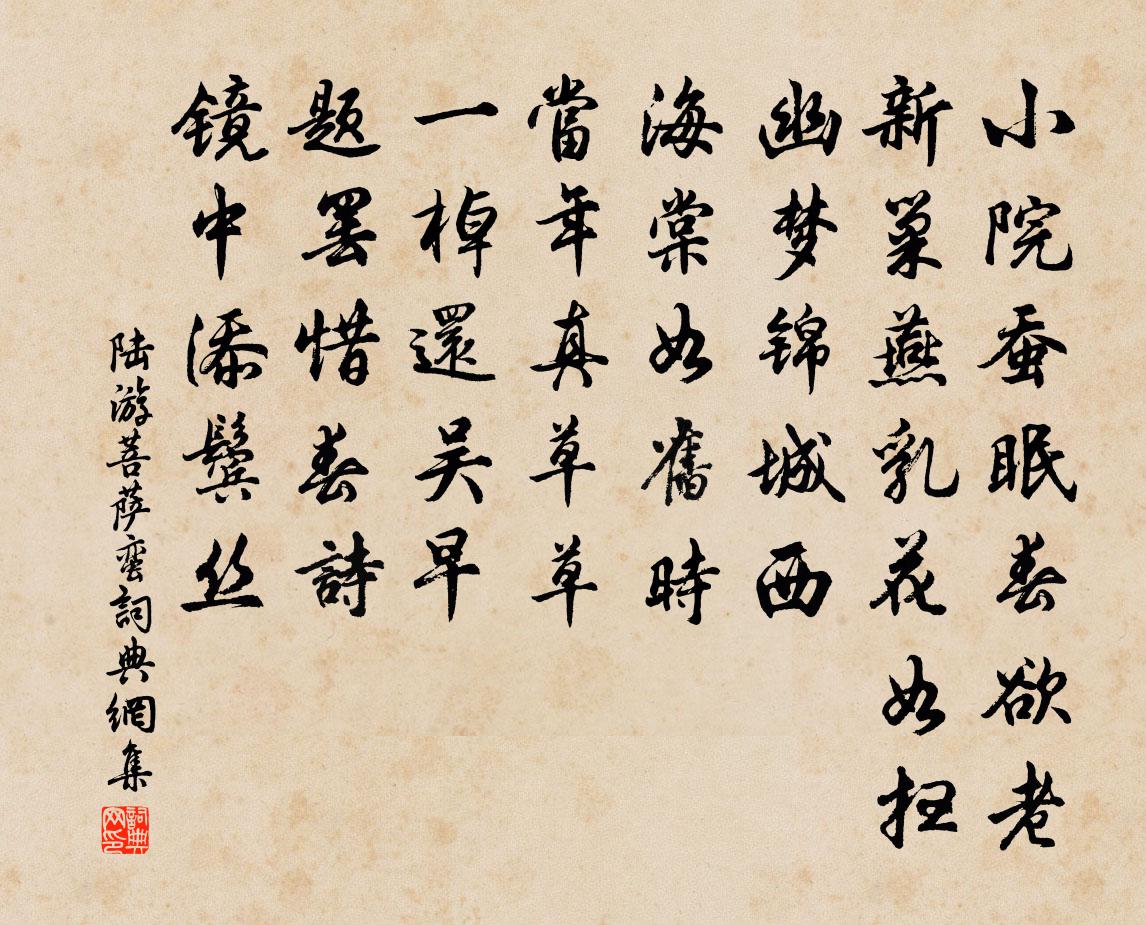 小院蚕眠春欲老
新巢燕乳花如扫
幽梦锦城西
海棠如舊時
當年真草草
一棹還吴早
题罢惜春詩
镜中添鬓丝
陆游菩萨蛮詞典網集
詞典网印